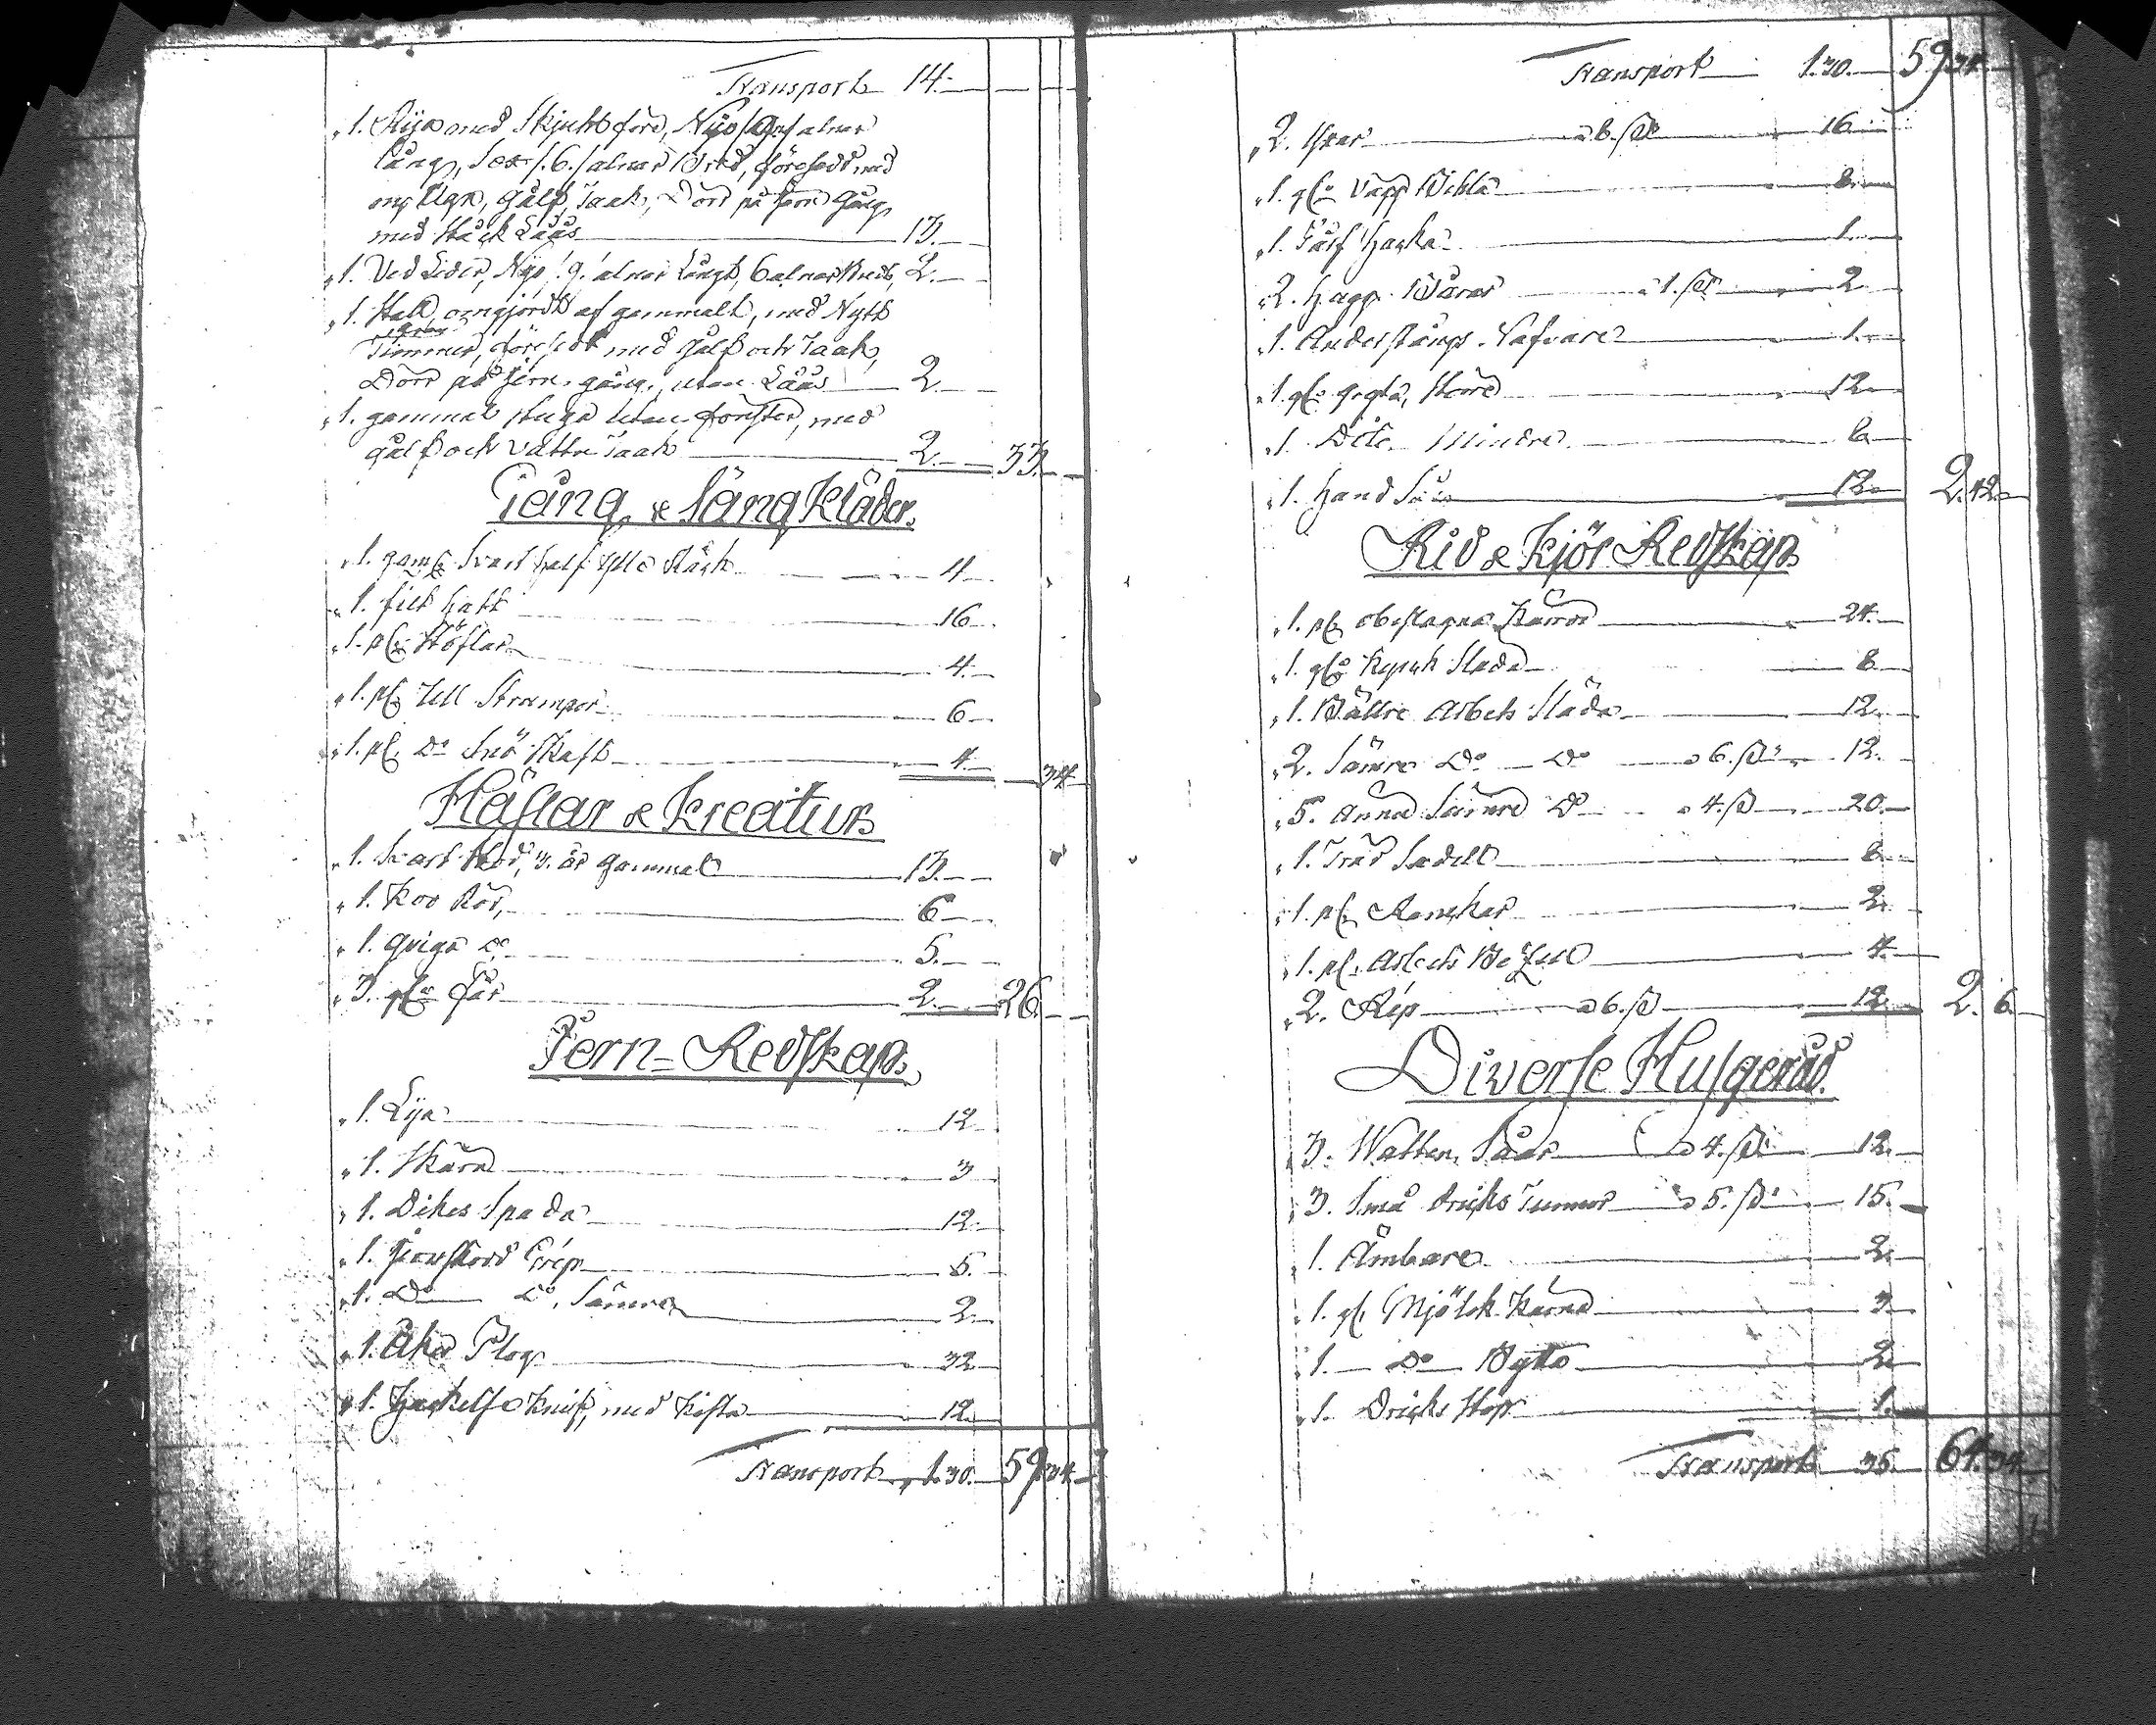 Transport 14.
1. Rija med Skjuhlfore, Nijo /9/ alnar
lång, Sex /.6./ alnar Bred, försedd med
Golf, Taak, Dörr på Jern Gång,
med Stäck Låås 13.
1. Ved Lider, Nijo /.9./ alnar Långt, 6 alnar Bredt, 2.
1. Stall, omgjordt af gammalt, med Nytt
Timmer, försedt med Golf och Taak,
Dörr på Jern gång, utan Låås 2.
1. gammal stuga utan fönster, med
golf och Vattu Taak 2. 33.
Gång & Säng Kläder.
1. gaml. Svart half Ylle Råck 4
1. filt hatt 16
1. pr. Stöflar 4.
1. pr. Ull Strumpor 6
1. pr. Do Snö Skaft 4. 34
Hästar & Kreatur
1. Svart Stod, 3. år gammal 13.
1. Koo Röd, 6
1. Qviga do 5.
3. gla får 2. 26.
Jern-Redskap.
1. Lija 12
1. Skära 3
1. Dikes Spada 12.
1. Jernskodd Grep 5.
1. Do Do, Sämre 2.
1. Åker Plog 32
1. Hackelse knif, med kista 12.
Transport 1.30. 59.34.
Transport 1.30. 59.34.
2. Yxar a 8. sk 16.
1. gl. Tapp Bihla 8.
1. Torf hacka 1.
2. hagg Bårar a 1. sk 2
1. Anderstångs Nafvare 1.
1. gl. gryta, större 12.
1. Dito Mindre 6.
1. Hand Såg 12. 2.12.
Rid & Kjör Redskap
1. pr. obeslagna Kärror 24.
1. gl. Ryssk Släda 8
1. Bättre Arbets Släda 12.
2. Sämre Do Do a 6. sk 12.
5. Ännu Sämre Do a 4. sk 20.
1. Träd Sadell 8
1. pr. Ranckor 2.
1. pr. Arbets Betzel 4.
2. Rep a 6. sk 12. 2. 6.
Diverse Husgeråd.
3. Watten Såar a 4. sk 12.
3. Små dricks Tunnor a 5. sk 15.
1. Ämbare 2.
1. gl. Mjölk Kärna 3
1. Do Bytta 2.
1. Dricks Stop 1.
Transport 35. 64.34.